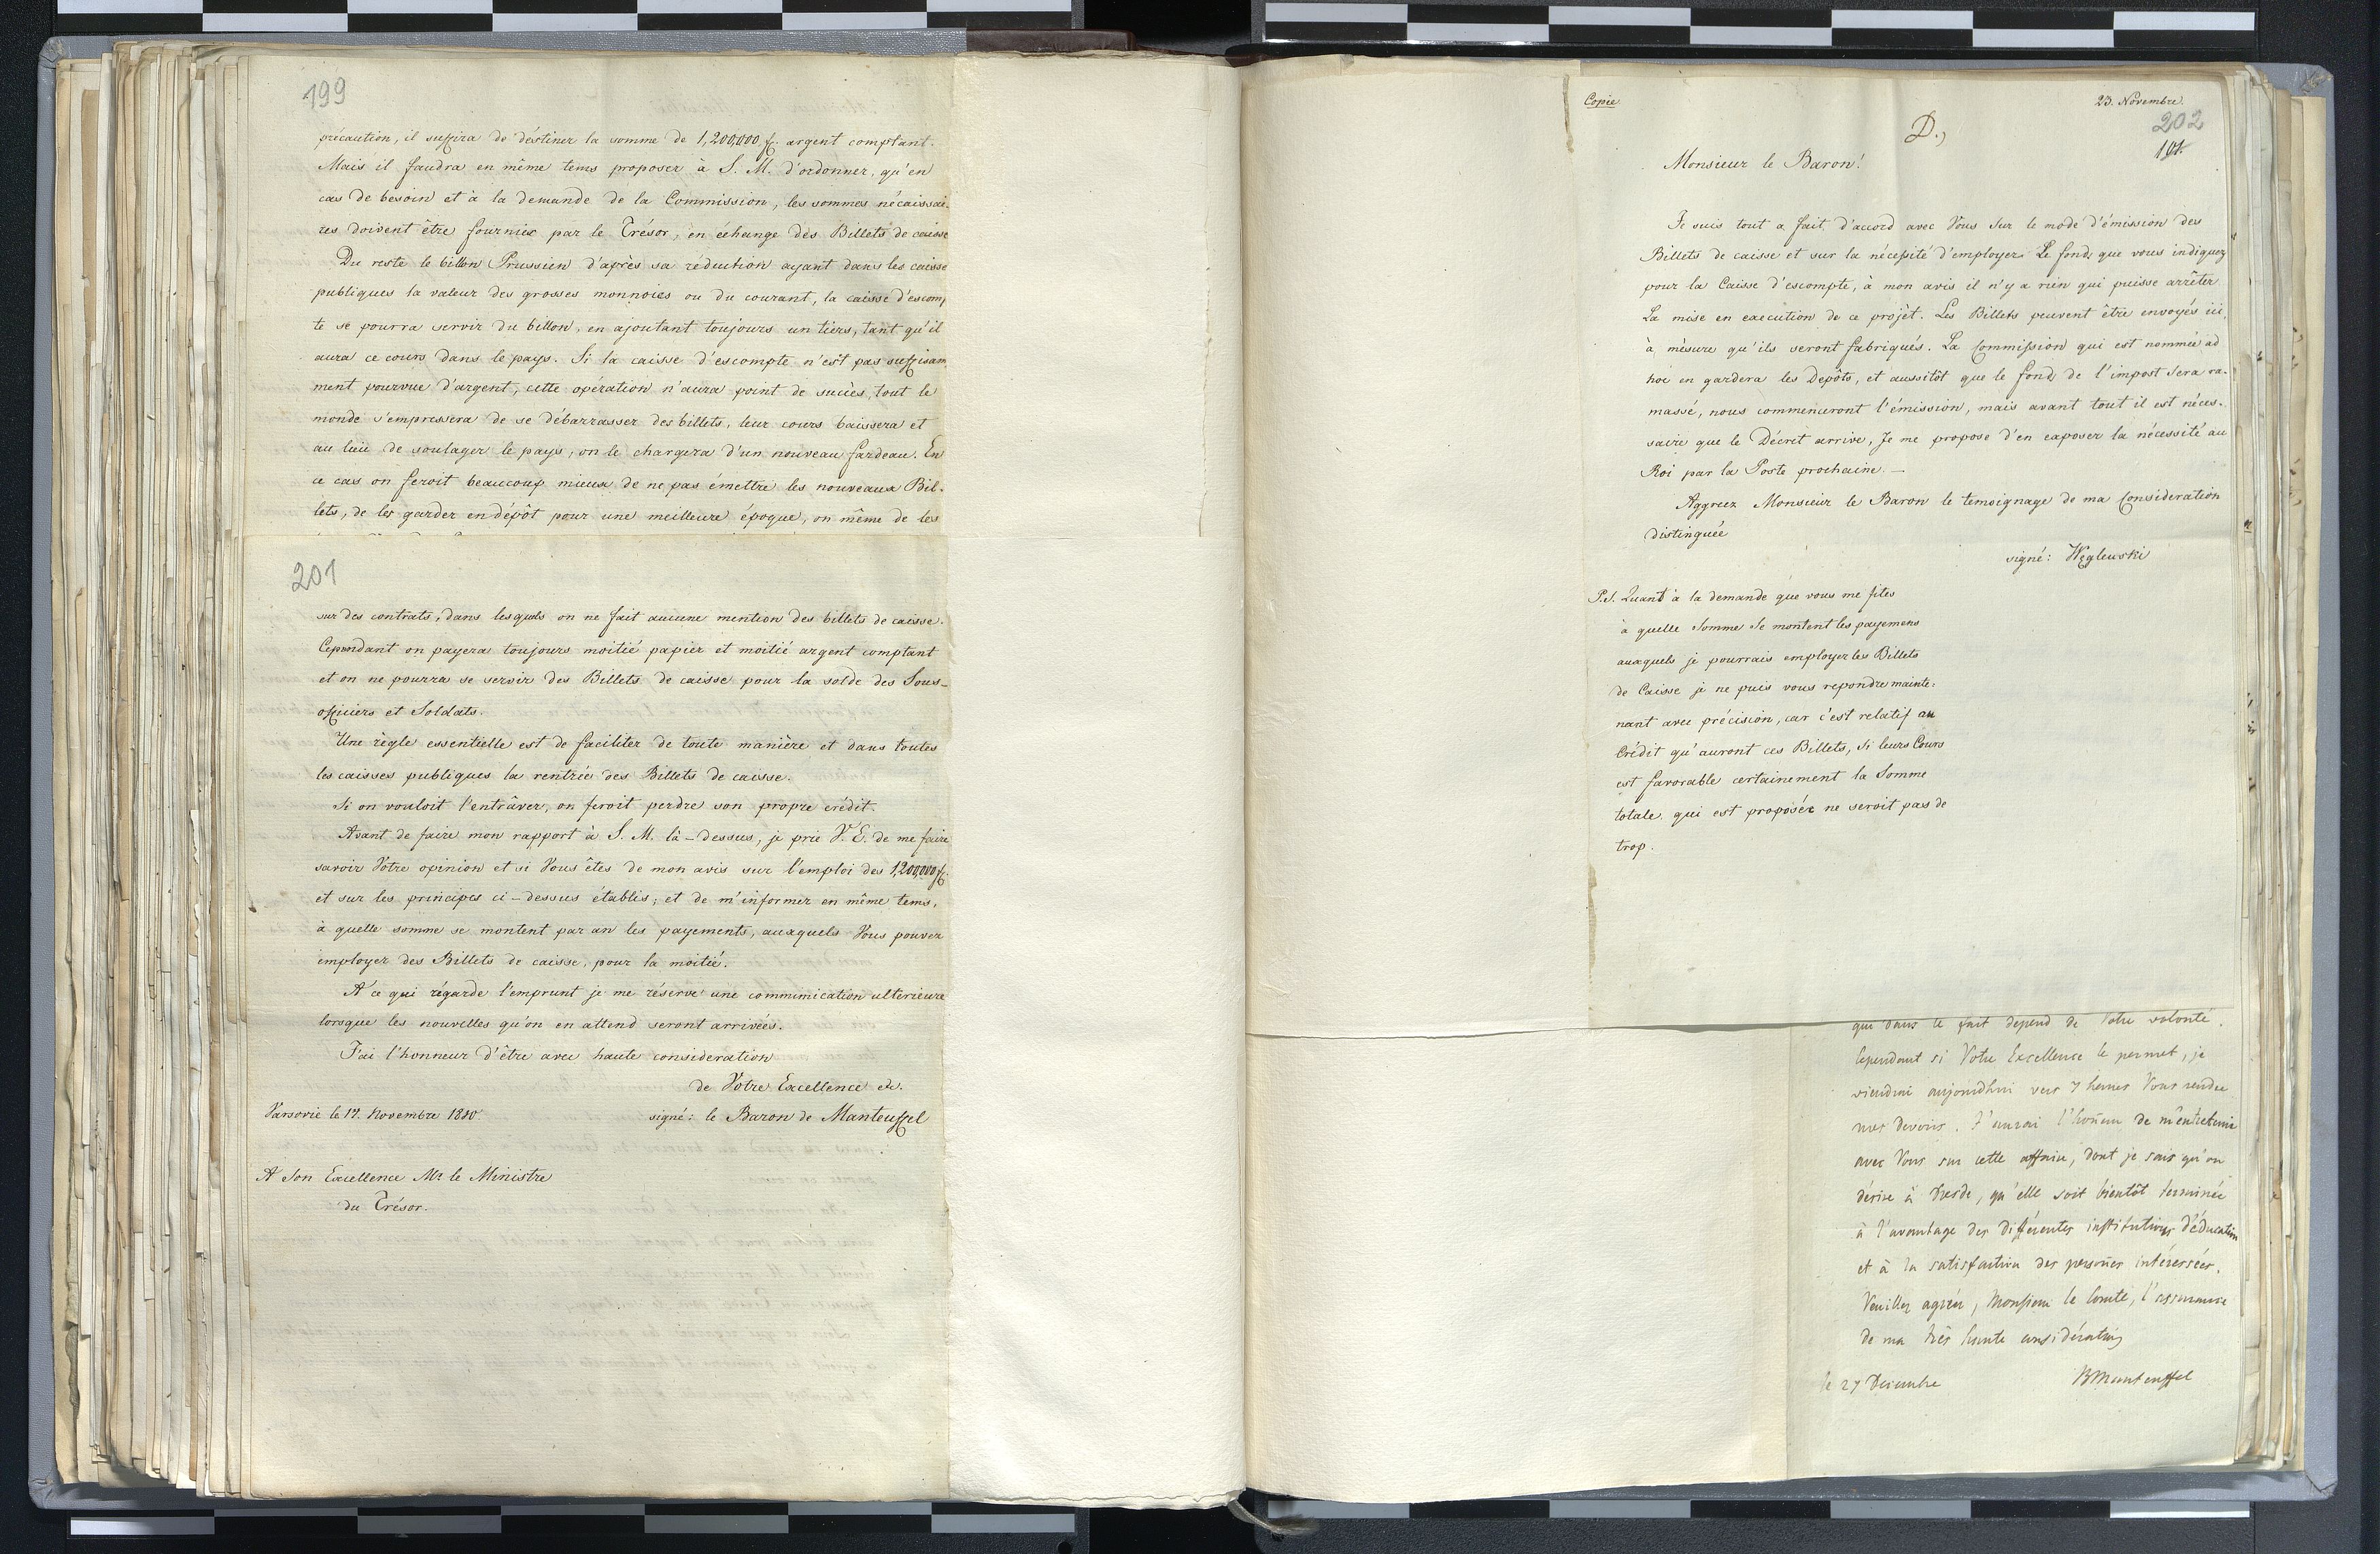 199
précaution, il suffira de déstiner la somme de 1,200,000 fl. argent comptant.
Mais il faudra en même tems proposer à S. M. d'ordonner, qu'en
cas de besoin et à la demande de la Commission, les sommes nécaissai-
res doivent être fournies par le Trésor, en échange des Billets de caisse
Du reste le billon Prussien d'après sa réduction ayant dans les caisse
publiques la valeur des grosses monnoies ou du courant, la caisse d'escom,
te se pourra servir du billon, en ajoutant toujours un tiers, tant qu'il
aura ce cours dans le pays. Si la caisse d'escompte n'est pas suffisam
ment pourvue d'argent, cette opération n'aura point de succès, tout le
monde s'empressera de se débarrasser des billets, leur cours baissera et
au lieu de soulager le pays, on le chargera d'un nouveau fardeau. En
ce cas on feroit beaucoup mieux de ne pas émettre les nouveaux Bil-
lets, de les garder en dépôt pour une meilleure époque, on même de les
201
sur des contrats, dans lesquels on ne fait aucune mention des billets de caisse.
Cependant on payera toujours moitié papier et moitié argent comptant
et on ne pourra se servir des Billets de caisse pour la solde des Sous-
officiers et Soldats.
Une règle essentielle est de faciliter de toute manière et dans toutes
les caisses publiques la rentrée des Billets de caisse.
Si on vouloit l'entrâver, on feroit perdre son propre crédit.
Avant de faire mon rapport à S. M. là-dessus, je prie V. E. de me faire
savoir Votre opinion et si Vous êtes de mon avis sur l'emploi des 1,200,000 fl.
et sur les principes ci-dessus établis; et de m'informer en même tems,
à quelle somme se montent par an les payements, auxquels Vous pouvez
employer des Billets de caisse, pour la moitié.
A ce qui régarde l'emprunt je me réserve une communication ulterieure
lorsque les nouvelles qu'on en attend seront arrivées.
J'ai l'honneur d'être avec haute consideration
de Votre Excellence etc.
Varsovie le 17. Novembre 1810.
signé: le Baron de Manteuffel
A Son Excellence Mr. le Ministre
du Trésor.
Copie
23. Novembre.
202
101.
D.,
Monsieur le Baron!
Je suis tout a fait d'accord avec Vous sur le mode d'émission des
Billets de caisse et sur la nécessité d'employer Le fond que vous indiquez
pour la Caisse d'escompte, à mon avis il n'y a rien qui puisse arrêter
La mise en execution de ce projêt. Les Billets peuvent être envoyés ici,
à mèsure qu'ils seront fabriqués. La Commission qui est nommée ad
hoc en gardera les Depôts, et aussitôt que le fond de l'impost sera ra-
massé, nous commenceront l'émission, mais avant tout il est néces-
saire que le Décret arrive, Je me propose d'en exposer la nécessité au
Roi par la Poste prochaine. —
Aggreez Monsieur le Baron le temoignage de ma Consideration
distinguée
signé: Węglewski
P.S. Quant à la demande que vous me fites
à quelle Somme Se montent les payemens
auxquels je pourrais employer les Billets
de Caisse je ne puis vous repondre mainte-
nant avec précision, car c'est relatif au
Crédit qu'auront ces Billets, Si leurs Cours
est favorable certainement la Somme
totale qui est proposée ne seroit pas de
trop.
qui dans le fait depend de Votre volonté.
Cependant si Votre Excellence le permet, je
viendrai aujourdhui vers 7 heures Vous rendre
mes devoirs. J'aurai l'honeur de m'entretenir
avec Vous sur cette affaire, dont je sais qu'on
désire à Dresde, qu'elle soit bientôt terminée
à l'avantage des differentes institutions d'éducation
et à la satisfaction des personnes intéressées.
Veuillez agréer, Monsieur le Comte, l'assurance
de ma très haute considération
le 27 Decembre
BManteuffel